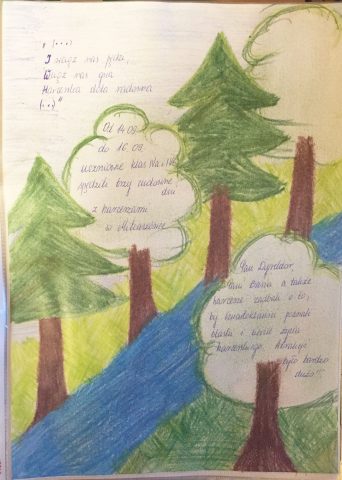 „ (...)
I wciąż nas
Wciąż nas gna
Harcerska dola radosna
(...)"
Od 14.09.
do 16.09.
uczniowie klas IVa i IVb
spędzili trzy cudowne
dni
z harcerzami
w
Pan Dyrektor,
Pani Basia a także
harcerze zadbali o to,
by czwartoklasiści poznali
blaski i cienie życia
harcerskiego. Atrakcji
było bardzo
dużo!!!